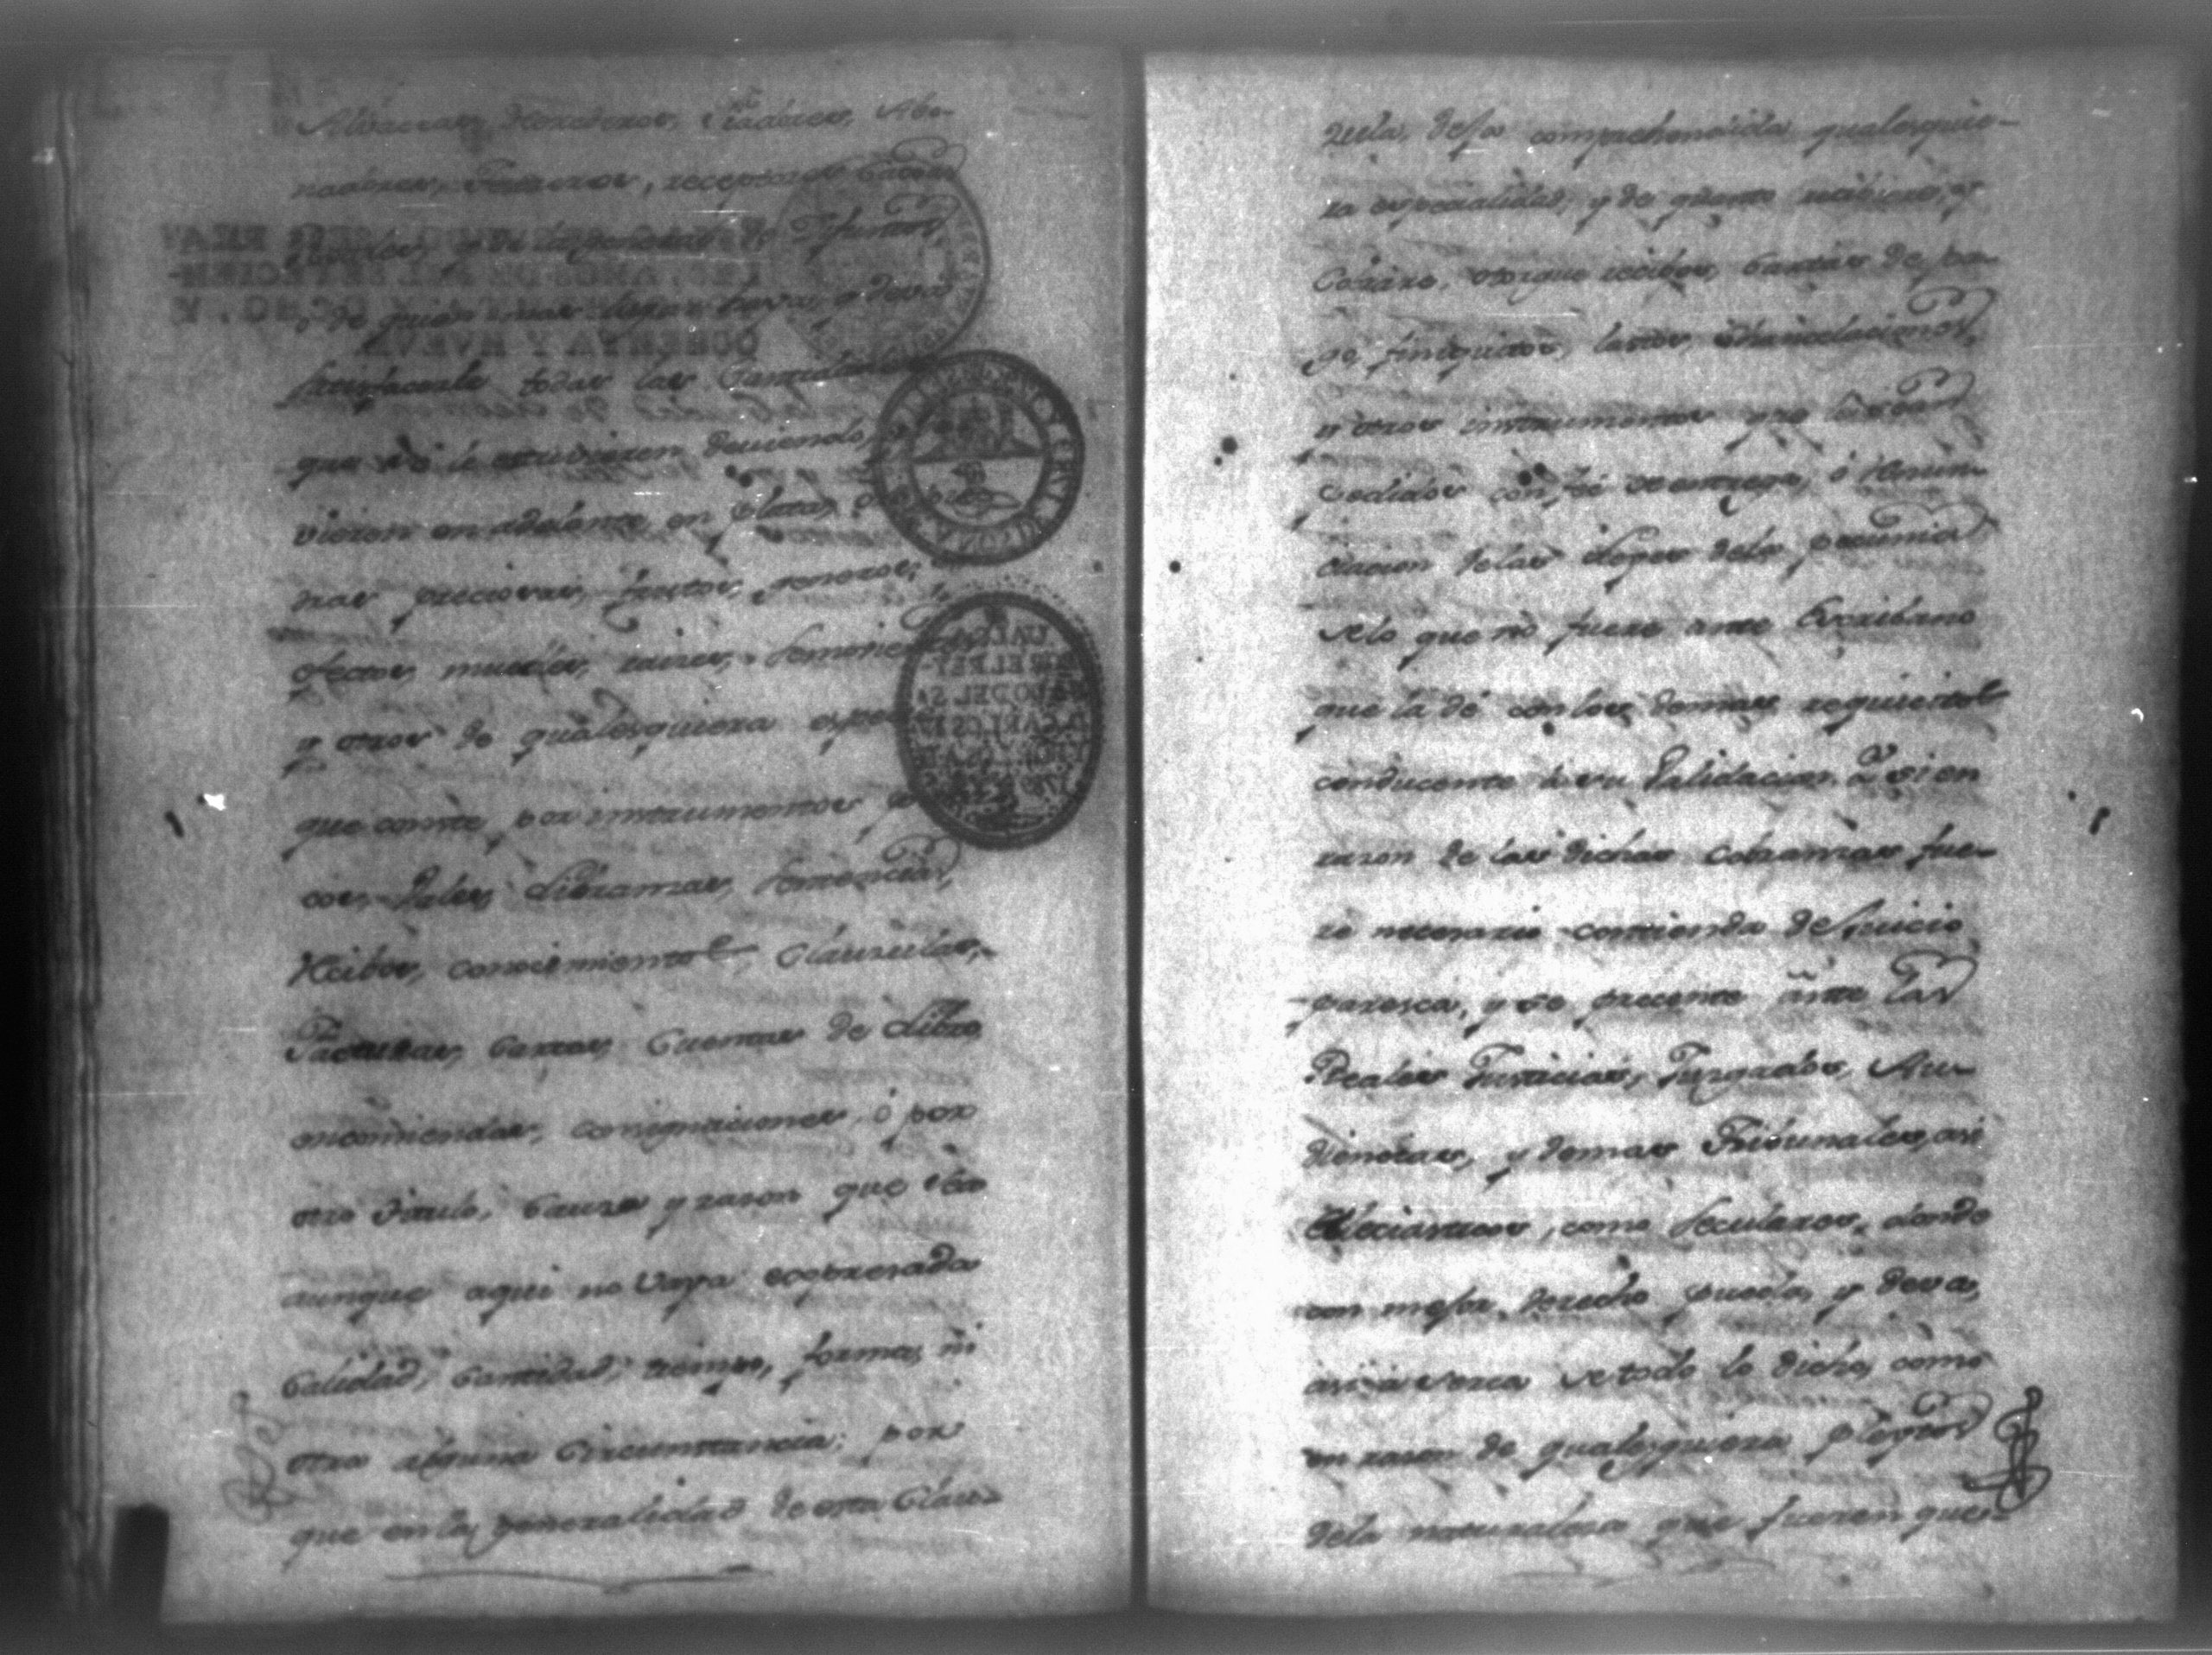 Alvaceas, Herederos, Fiadores, Abo-
nadores, Tesoreros, receptores
reales, y de la general de Difuntos,
o de quien mas haya, y deva
satisfacerle todas las Cantidades
que se le estuvieren deviendo,
vieren en adelante, en plata,
dras preciosas, frutos, generos,
efectos, muebles, raises, Semovientes
y otros de qualesquiera espe
que conste por instrumentos
cos, Vales, Libranzas, Sentencias,
Recibos, conocimientos, Clausulas,
Facturas, Cartas, Cuentas de Libro
encomiendas, consignaciones, ó por
otro titulo, Causa y rason que sea
aunque aqui no Vaya expresada
Calidad, Cantidad, tiempo, forma, ni
otra alguna Circunstancia; por
que en la generalidad de esta Clau-
zula, dejo comprehendida qualesquie-
ra especialidad, y de quanto reciviere, y
Cobrare, otorgue recibos, Cartas de pa-
go, finiquitos, lastos, Chancelaciones,
y otros instrumentos que le sean
pedidos con fé de entrega, ó Renun-
ciacion de las Leyes de la pecunia
de lo que no fuere ante Escribano
que la dé con los demas requicitos
conducente á su Validacion. Y si en
rason de las dichas Cobranzas fue-
re necesario contienda de Juicio
paresca, y se precente ánte las
Reales Justicias, Jusgados, Au-
diencias, y demas Tribunales, asi
Eclesiasticos, como Seculares, donde
con mejor derecho pueda, y deva,
asi a serca de todo lo dicho, como
en rason de qualesquiera pleytos
de la naturalesa que fueren que